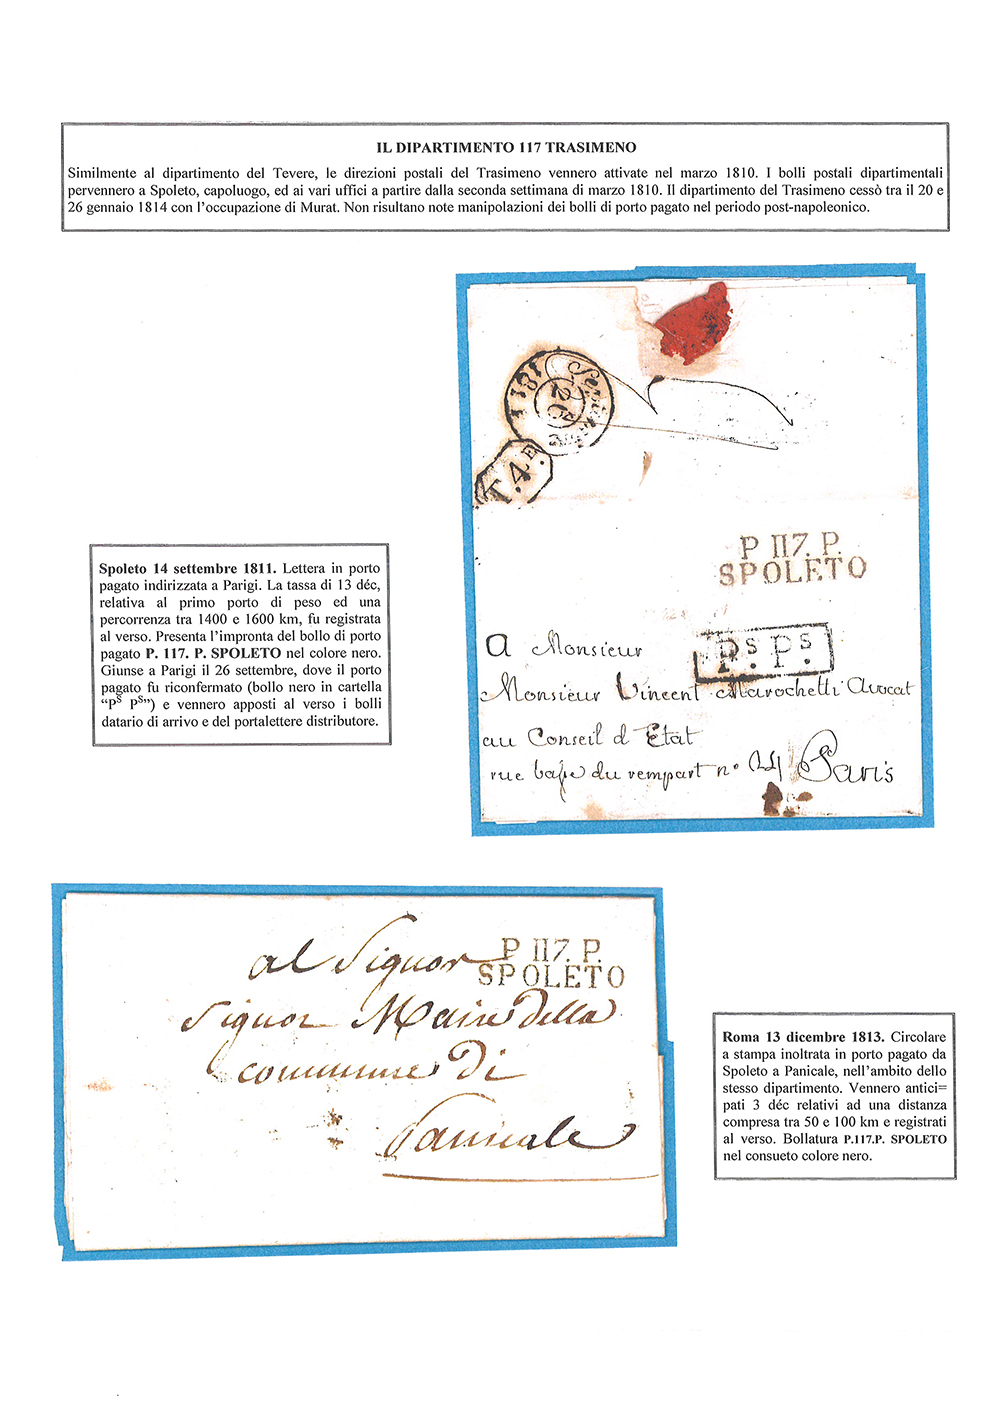 IL DIPARTIMENTO 117 TRASIMENO
Similmente al dipartimento del Tevere, le direzioni postali del Trasimeno vennero attivate nel marzo 1810. I bolli postali dipartimentali
pervennero a Spoleto, capoluogo, ed ai vari uffici a partire dalla seconda settimana di marzo 1810. Il dipartimento del Trasimeno cessò tra il 20 e
26 gennaio 1814 con l'occupazione di Murat. Non risultano note manipolazioni dei bolli di porto pagato nel periodo post-napoleonico.
1811
26
T.4E.
P 117. P.
SPOLETO
Ps.Ps
A Monsieur
Monsieur Vincent Marochetti Avocat
au Conseil d Etat
rue basse du rempart n° 24 Paris
Spoleto 14 settembre 1811. Lettera in porto
pagato indirizzata a Parigi. La tassa di 13 déc,
relativa al primo porto di peso ed una
percorrenza tra 1400 e 1600 km, fu registrata
al verso. Presenta l'impronta del bollo di porto
pagato P. 117. P. SPOLETO nel colore nero.
Giunse a Parigi il 26 settembre, dove il porto
pagato fu riconfermato (bollo nero in cartella
"PS PS") e vennero apposti al verso i bolli
datario di arrivo e del portalettere distributore.
P 117. P.
SPOLETO
al Signor
Signor Maire della
commune di
Panicale
Roma 13 dicembre 1813. Circolare
a stampa inoltrata in porto pagato da
Spoleto a Panicale, nell'ambito dello
stesso dipartimento. Vennero antici=
pati 3 déc relativi ad una distanza
compresa tra 50 e 100 km e registrati
al verso. Bollatura P.117.P. SPOLETO
nel consueto colore nero.